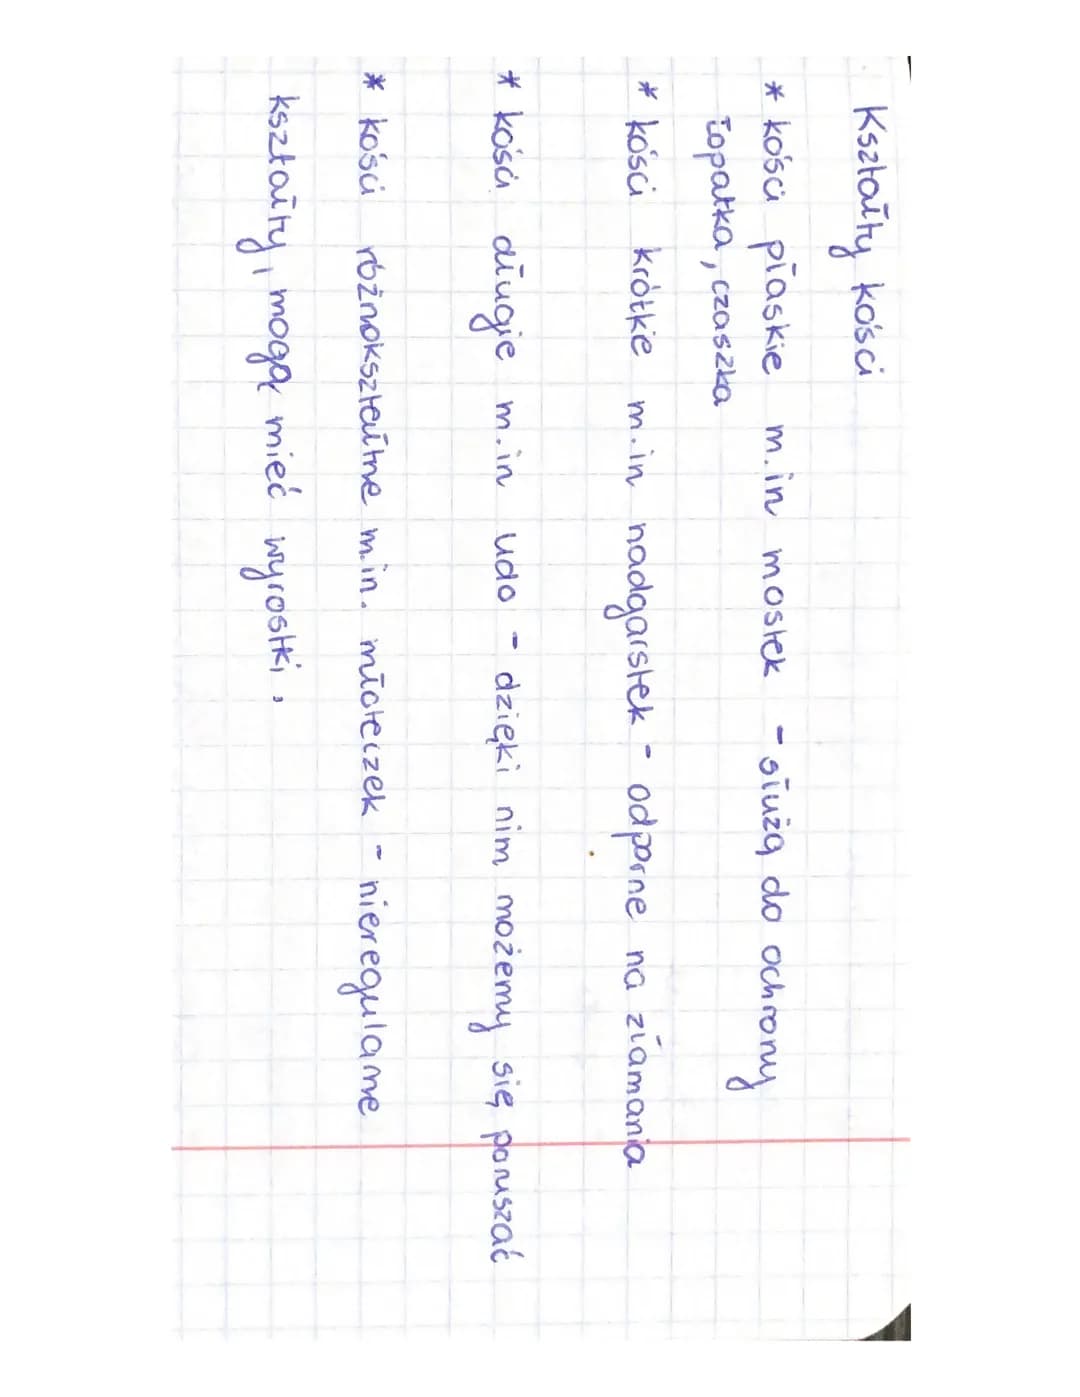 Kształty kości
* kości płaskie m.in mostek - służą do ochrony
łopatka, czaszka
* kości krótkie m.in nadgarstek - odporne na złamania
* kości długie m.in udo - dzięki nim możemy się poruszać
* kości różnokształtne m.in. młoteczek - nieregularne
kształty, mogą mieć wyrostki,